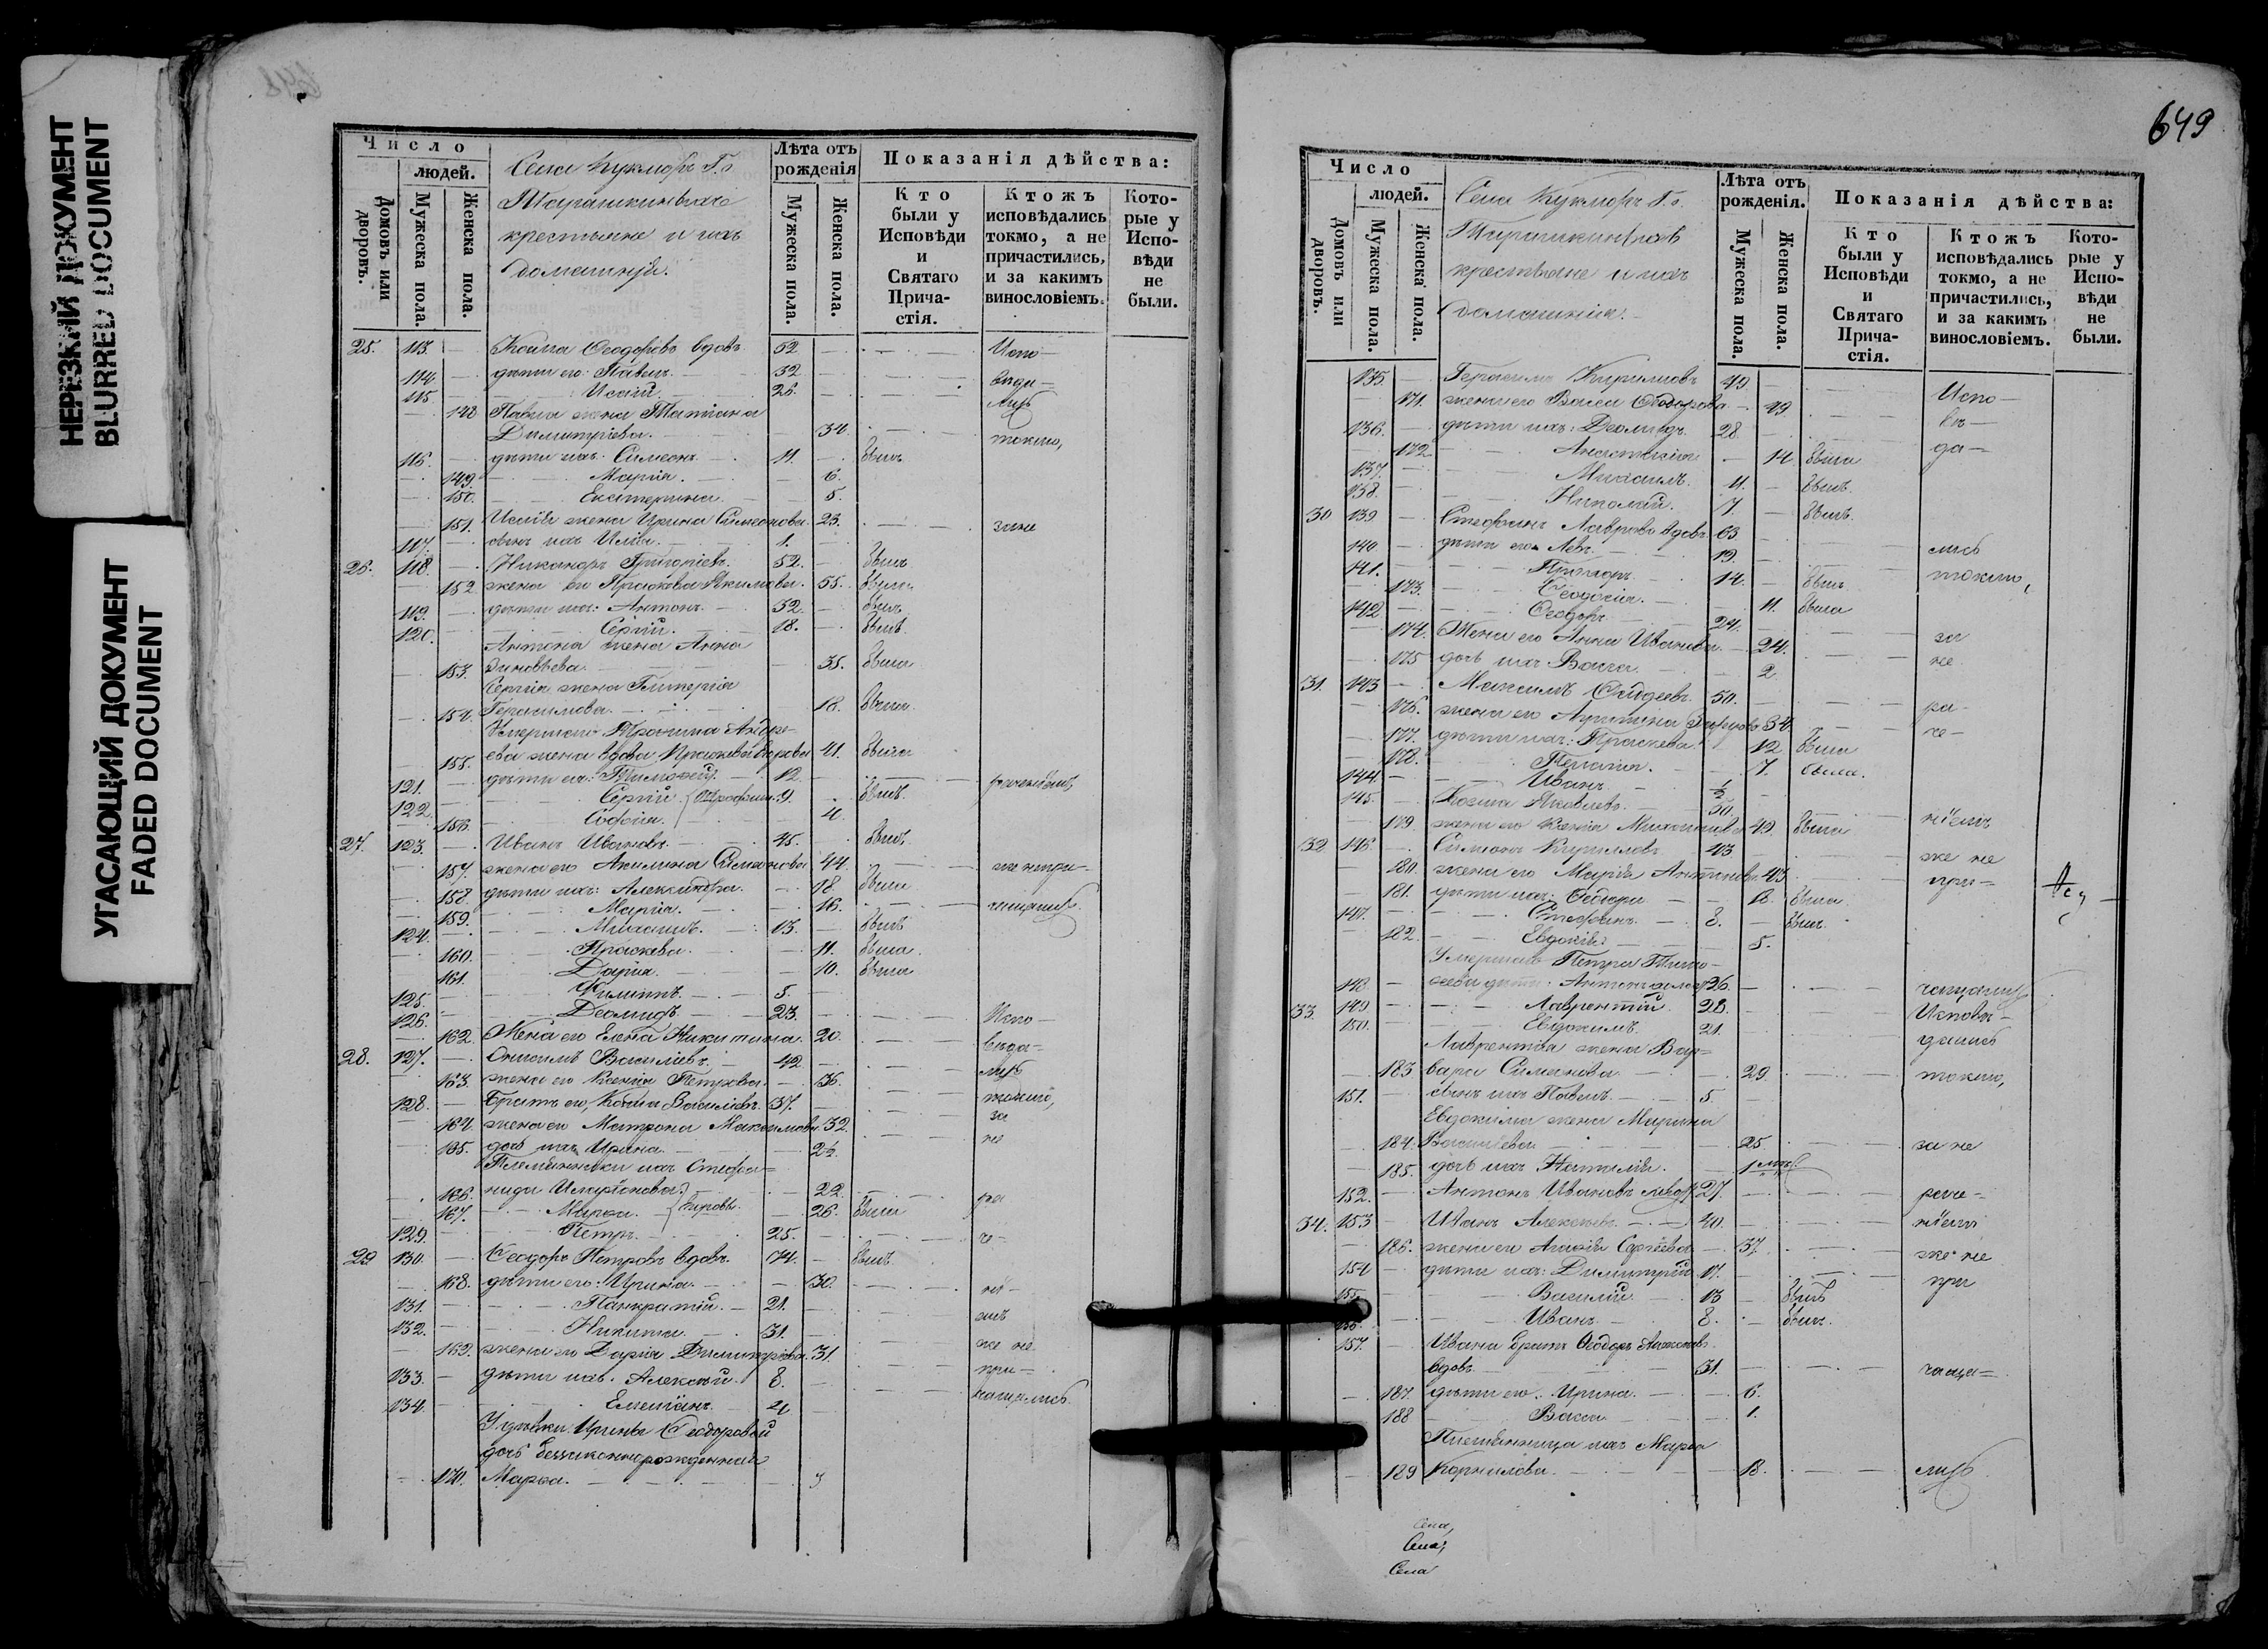 НЕРЕЗКИЙ ДОКУМЕНТ
BLURRED DOCUMENT
УГАСАЮЩИЙ ДОКУМЕНТ
FADED DOCUMENT
Число
людей.
Домовъ или дворовъ.
Мужеска пола.
Женска пола.
Села Кукморъ Г.
крестьяне и ихъ
домашніи.
Лѣта отъ рожденія
Мужеска пола.
Женска пола.
Показанія дѣйства:
Кто были у Исповѣди и Святаго Причастія.
Ктожъ исповѣдались токмо, а не причастились, и за какимъ винословіемъ.
Которые у Исповѣди не были.
25. 113. Козма Ѳеодоровъ вдовъ 52 Испо-
114 дѣти его: Павелъ 32 вѣда-
115 Исаій 26. лись
148 Павла жена Татіана
Димитріева. 34. токмо,
116. дѣти ихъ: Симеонъ 11. былъ
149. Марія. 6.
150. Екатерина. 5.
151. Исаія жена Ирина Симеонова 23. зане
117. сынъ ихъ Илія. 1.
26. 118. Никаноръ Григоріевъ. 52. былъ
152 жена его Праскева Акимова. 55. была
119. дѣти ихъ: Антонъ. 32 былъ
120. Сергій. 18. былъ
Антона жена Анна
153. Зиновьева 35. была
Сергія жена Гликерія
154. Герасимова. 18. была
155. 41. была
121. дѣти ея: Тимоѳей. 12.
122. Сергій 9. былъ
156. Софія. 4.
27. 123. Иванъ Ивановъ. 45. былъ
157. жена его Акилина Симеонова 44 же непри-
158 дѣти ихъ: Александра. 18. была
159. Марія. 16.
124. Михаилъ. 13. былъ
160. Праскева. 11. была
161. Дарія. 10. была
125. Филиппъ. 5.
126. Деомидъ. 23. Испо-
162. Жена его Елена Никитина. 20. вѣда-
28. 127. Онисимъ Василіевъ. 42 лись
163. жена его Ксенія Петрова. 36.
128. Братъ его, Козма Василіевъ. 37. токмо,
164. жена его Матрона Максимова. 32. за
165. дочь ихъ Ирина. 2½. не
Племянники ихъ Стефа-
166. нида 22. ра
167. Марѳа. 26. была
129. Петръ. 25. че-
29 130. Ѳеодоръ Петровъ вдовъ. 74. былъ
168. дѣти его: Ирина. 30. ні-
131. Панкратій. 21. емъ
132. Никита. 31. же не
169. жена его Дарія Димитріева. 31.
133. дѣти ихъ: Алексѣй. 8. при-
134. Емеліанъ. 4 чащались.
У дѣвки Ирины Ѳеодоровой
дочь беззаконнорожденная
170. Марѳа. 3
649
Число
людей.
Домовъ или дворовъ.
Мужеска пола.
Женска пола.
Села Кукморъ Г.
крестьяне и ихъ
домашніи.
Лѣта отъ рожденія.
Мужеска пола.
Женска пола.
Показанія дѣйства:
Кто были у Исповѣди и Святаго Причастія.
Ктожъ исповѣдались токмо, а не причастились, и за какимъ винословіемъ.
Которые у Исповѣди не были.
135. Герасимъ Кириловъ 49. Испо-
171. жена его Васса Ѳеодорова 49 вѣ-
136. дѣти ихъ: Деомидъ. 28 да-
172 Анастасія 14 была
137. Михаилъ. 11. былъ
138. Николай. 7. былъ
30 139 Стефанъ Лавровъ вдовъ 63
140. дѣти его: Левъ. 19. лись
141. Прохоръ. 14. былъ токмо,
173. Ѳеодосія. 11. была
142 Ѳеодоръ. 24. за
174. Жена его Анна Иванова. 24. не
175 дочь ихъ Васса. 2
31. 143 Максимъ 50. ра-
176. жена его 34. че-
177. дѣти ихъ: Праскева. 12 была
178. Пелагія. 7. была.
144. Иванъ. ½
145. Козма Яковлевъ. 50.
179 жена его Ксенія 49. была ніемъ
32 146. Симеонъ Кириловъ 43 же не
180. жена его Марія Антонова 43. при-
181. дѣти ихъ: Ѳедора 18. была
147. Стефанъ. 8. былъ
182. Евдокія 5.
Умершаго Петра Тимо-
148 ѳеева дѣти: Антонъ 26. чащались
33. 149 Лаврентій 28. Исповѣ-
150. Евдокимъ. 21. дались
Лаврентія жена Вар-
183. вара Симеонова 29. токмо,
151. сынъ ихъ Павелъ. 5
Евдокима жена Марина
184. Васильева 25. за не
185. дочь ихъ Наталія. 1
152. Антонъ Ивановъ 27. рече-
34. 153 Иванъ Алексѣевъ. 40. ніемъ
186. жена его Агафія Сергѣева 37. же не
154 дѣти ихъ: Димитрій 17. при
155. Василій. 13 былъ
156. Иванъ 8. былъ.
157. Ивана братъ Ѳеодоръ Алексѣевъ
вдовъ 31. чаща-
187. дѣти его: Ирина. 6.
188 Васса 1.
Племянница ихъ Марѳа
189 Корнилова. 18. лись
Села,
Села,
Села